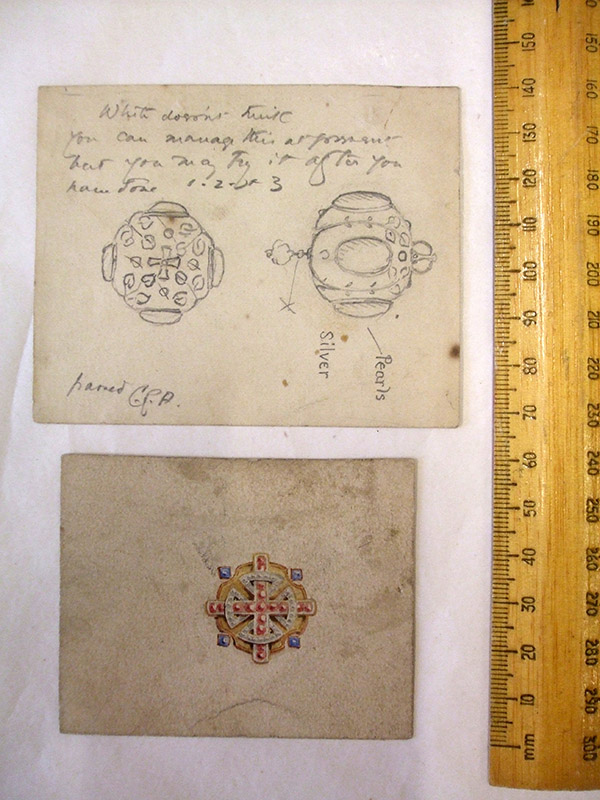 White doesn't think
you can manage this at present
but you may try it after you
have done 1. 2. & 3
Silver
Pearls
C.R.A.
150
140
130
120
110
100
90
80
70
60
50
40
30
20
10
mm
150
160
170
180
190
200
210
220
230
240
250
260
270
280
290
300